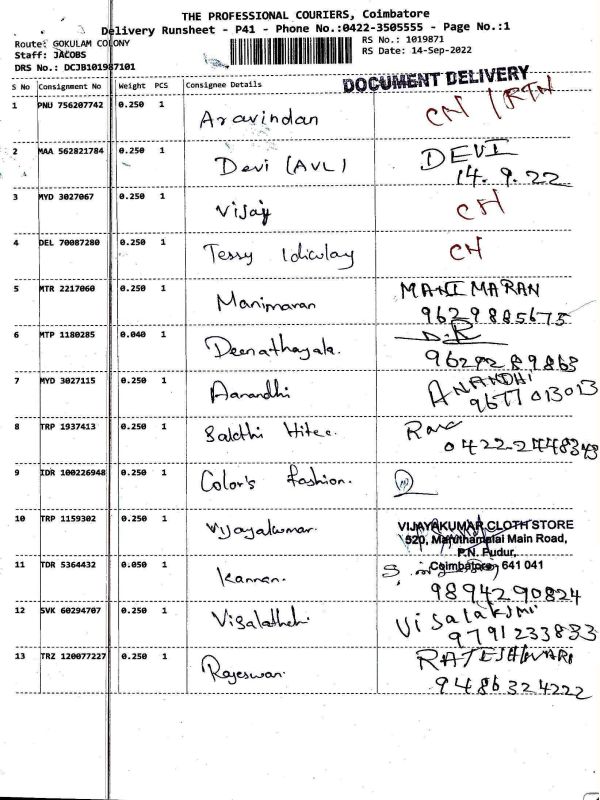 THE PROFESSIONAL COURIERS, Coimbatore
Delivery Runsheet - P41 - Phone No.:0422-3505555 - Page No.:1
Route: GOKULAM COLONY
RS No.: 1019871
Staff: JACOBS
RS Date: 14-Sep-2022
DRS No.: DCJB101987101
DOCUMENT DELIVERY
S No Consignment No Weight PCS Consignee Details
1 PNU 756207742 0.250 1 Aravindan CN / RTN
2 MAA 562821784 0.250 1 Devi (AVL) DEVI
14.9.22
3 MYD 3027067 0.250 1 Vijay CN
4 DEL 70087280 0.250 1 Tessy Idiculay CN
5 MTR 2217060 0.250 1 Manimaran MANIMARAN
9629885675
6 MTP 1180285 0.040 1 Deenathayala. D.R
7 MYD 3027115 0.250 1 Aanandhi ANANDHI
9677013013
8 TRP 1937413 0.250 1 Sakthi Hitec.
9 IDR 100226948 0.250 1 Color's fashion.
10 TRP 1159302 0.250 1 Vijayakumar. VIJAYAKUMAR CLOTH STORE
520, Maruthamalai Main Road,
P.N. Pudur,
Coimbatore - 641 041
11 TDR 5364432 0.050 1 Kannan. S.
9894290824
12 SVK 60294707 0.250 1 Visalatheli Visalakshmi
9791233833
13 TRZ 120077227 0.250 1 Rajeswari RAJESHWARI
9486324222